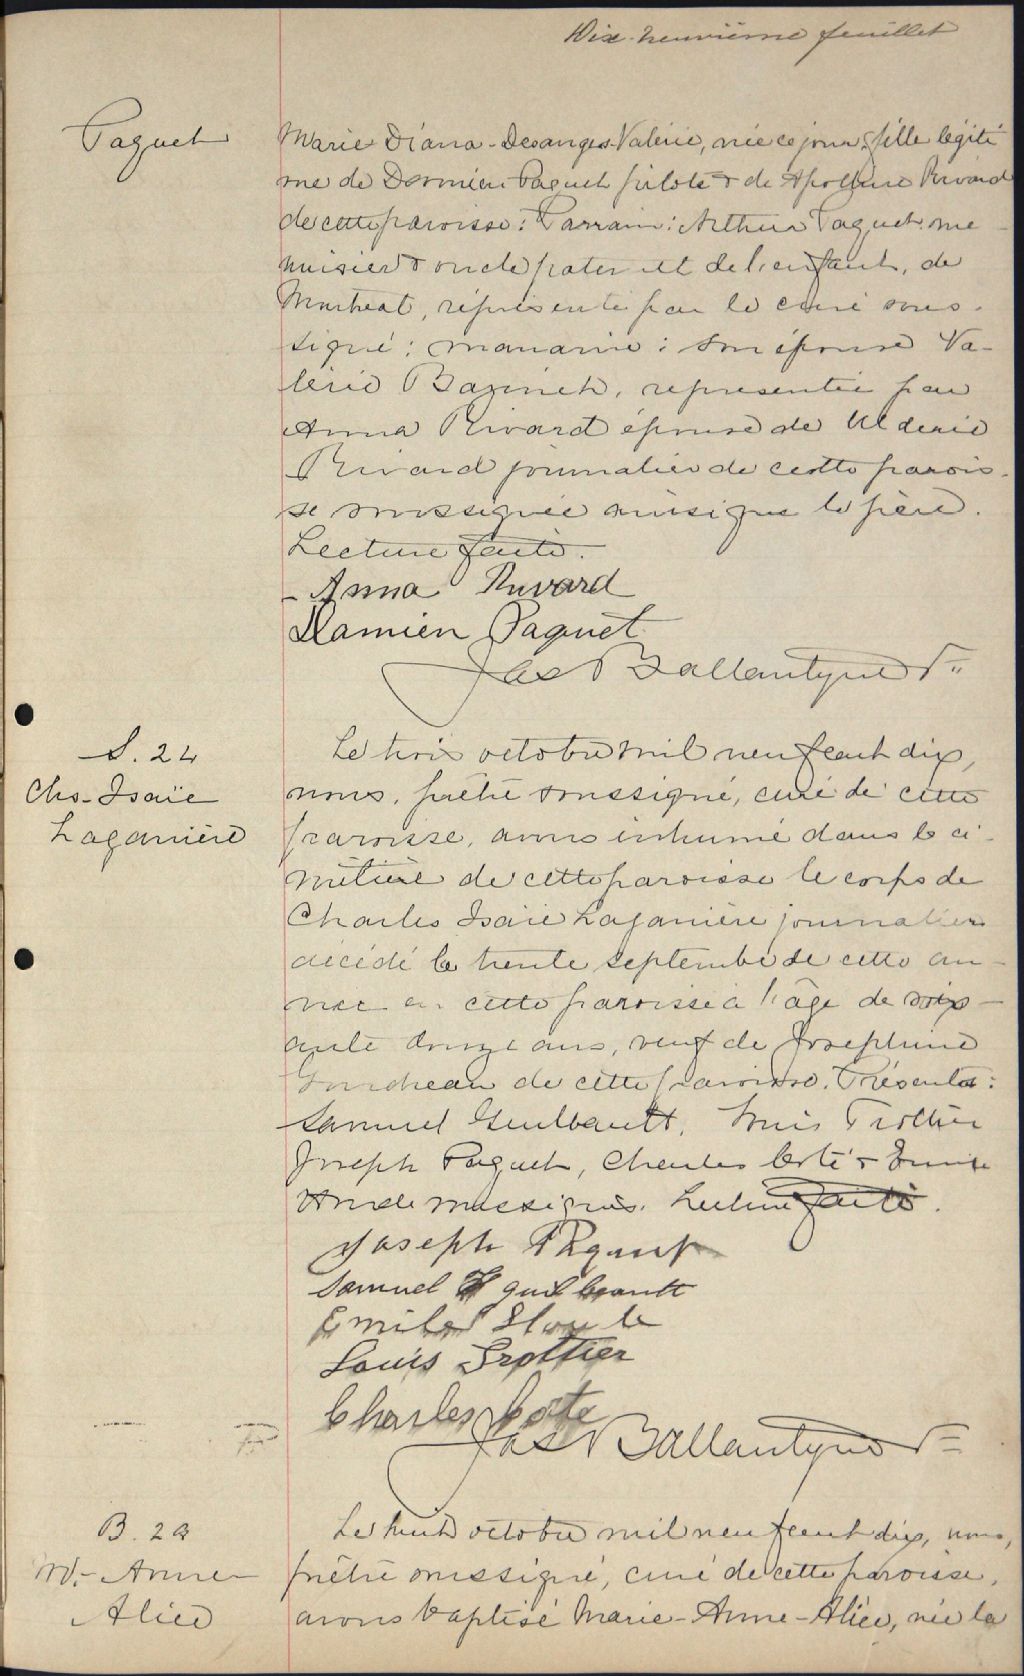 Dix-neuvième feuillet
Paquet
Marie Diana-Desanges-Valérie, née ce jour, fille légiti
me de Damien Paquet pilote & de Apolline Rivard
de cette paroisse: Parrain: Arthur Paquet me-
nuisier & oncle paternel de l'enfant, de
Montreal, représenté par le curé sous-
signé; marraine: son épouse Va-
lérie Bazinet, representée par
Anna Rivard épouse de Ulderic
Rivard journalier de cette parois-
se soussignée ainsi que le père.
Lecture faite.
Anna Rivard
Damien Paquet
Jas Ballantyne Ptre
S. 24
Chs-Isaïe
Laganière
Le trois octobre mil neuf cent dix,
nous, prêtre soussigné, curé de cette
paroisse, avons inhumé dans le ci-
mètière de cette paroisse le corps de
Charles Isaïe Laganière journalier
décédé le trente septembre de cette an-
née en cette paroisse à l'âge de soix-
ante douze ans, veuf de Josephine
de cette paroisse. Présents:
Samuel Guilbault, Louis Trottier
Joseph Paquet, Charles Coté &
soussignés. Lecture faite.
Joseph Paquet
Samuel guilbeault
Emile
Louis Trottier
Charles Cote
Jas Ballantyne Ptre
B. 29
M.-Anne-
Alice
Le huit octobre mil neuf cent dix, nous,
prêtre soussigné, curé de cette paroisse,
avons baptisé Marie-Anne-Alice, née le